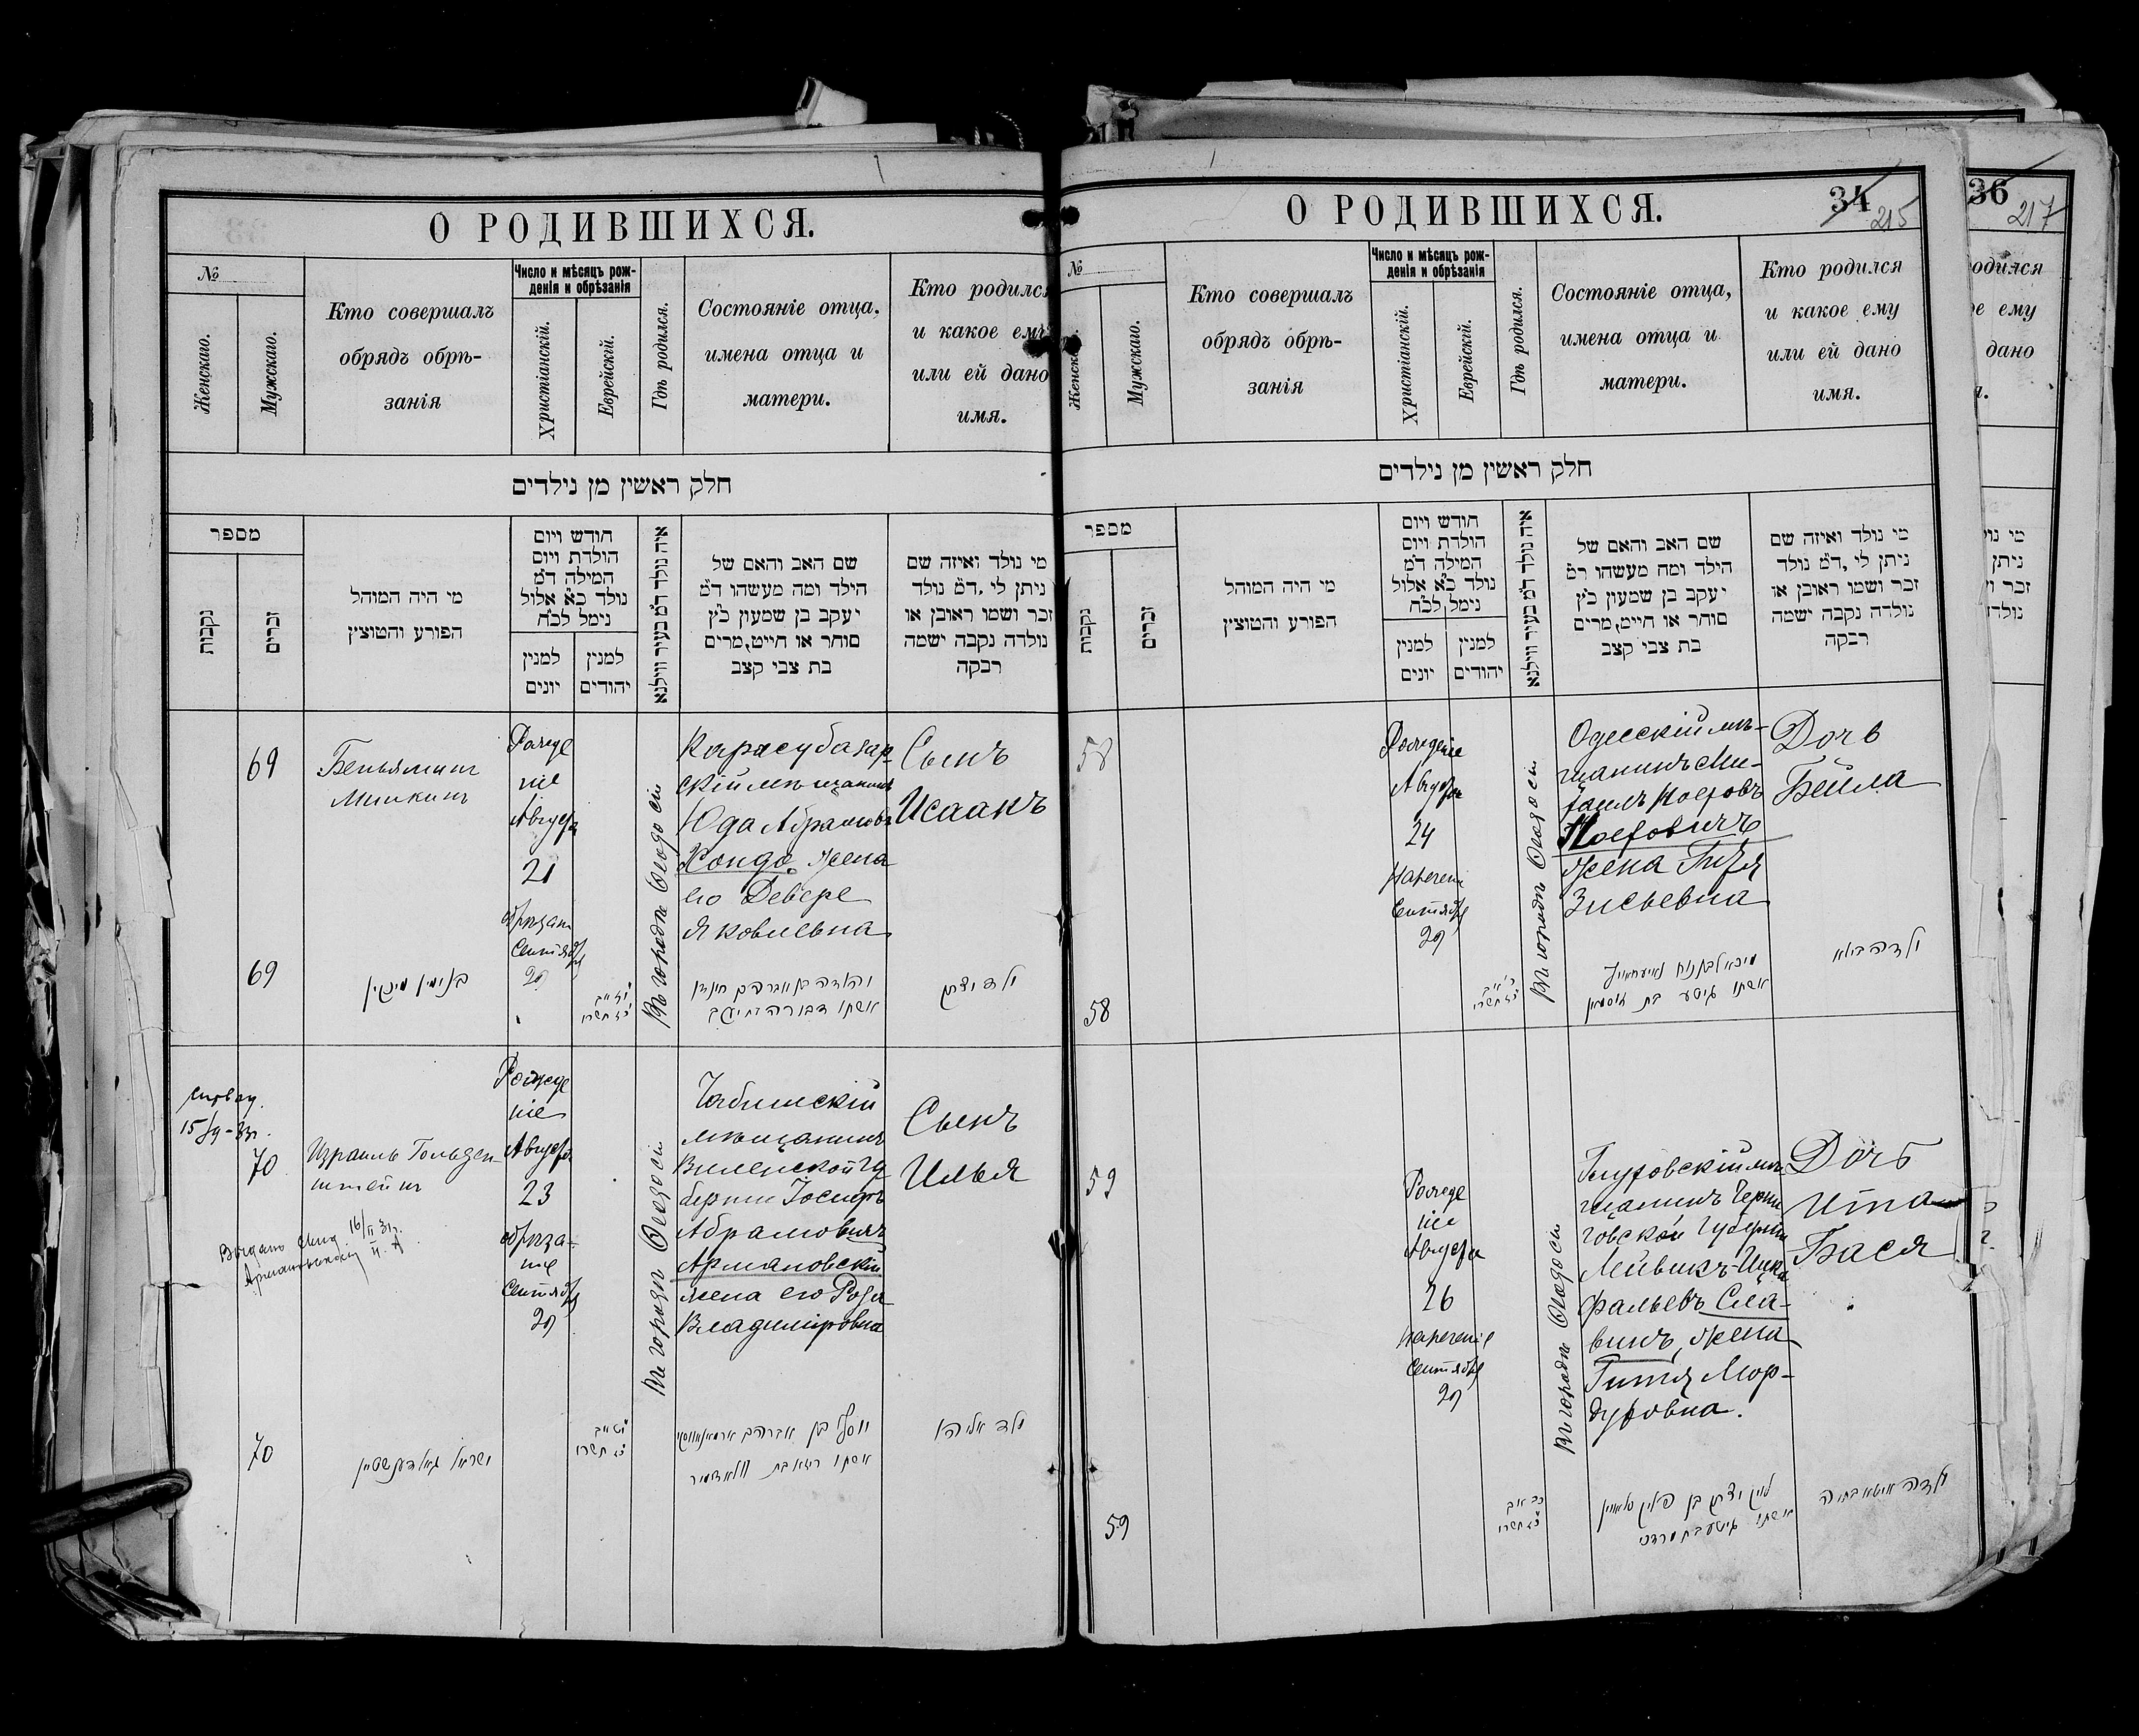 О РОДИВШИХСЯ.
№
Женскаго.
Мужскаго.
Кто совершалъ
обрядъ обрѣ-
занія
Число и мѣсяцъ рож-
денія и обрѣзанія
Христіанскій.
Еврейскій.
Гдѣ родился.
Состояніе отца,
имена отца и
матери.
Кто родился
и какое ему
или ей дано
имя.
חלק ראשין מן נילדים
מספר
נקבות
זכרים
מי היה המוהל
הפורע והטוצץ
חודש ויום
הולדת ויום
המילה ד״מ
נולד כ״א אלול
נימל לכ״ח
למנין
יונים
למנין
יהודים
איה נולד ד״מ בעיר ווילנא
שם האב והאם של
הילד ומה מעשהו ד״מ
יעקב בן שמעון כ״ץ
סוחר או חייט, מרים
בת צבי קצב
מי נולד ואיזה שם
ניתן לי, ד״מ נולד
זכר ושמו ראובן או
נולדה נקבה ישמה
רבקה
69
Беньяминъ
Минкинъ
Рожде
ніе
Августа
21
обрѣзан
Сентября
29
Въ городѣ Ѳеодосіи
Карасубазар-
скій мѣщанинъ
Юда Абрамовъ
Хондо, жена
его Девере
Яковлевна
Сынъ
Исаакъ
69
בנימין מינקין
אשתו דבורה בת יעקב
ילד יצחק
15/IV-33г.
70
Израиль Гольден-
штейнъ
16/II 31г.
Рожде
ніе
Августа
23
обрѣза-
ніе
Сентября
29
Въ городѣ Ѳеодосіи
мѣщанинъ
Виленской гу
берніи Іосифъ
Абрамовичъ
Армановскій
жена его Роза
Владиміровна
Сынъ
Илья
70
ישראל גאלדענשטיין
יוסף בן אברהם ארמאנאווסקי
אשתו ראזא בת וולאדימיר
ילד אליהו
О РОДИВШИХСЯ.
34
215
№
Женскаго.
Мужскаго.
Кто совершалъ
обрядъ обрѣ-
занія
Число и мѣсяцъ рож-
денія и обрѣзанія
Христіанскій.
Еврейскій.
Гдѣ родился.
Состояніе отца,
имена отца и
матери.
Кто родился
и какое ему
или ей дано
имя.
חלק ראשין מן נילדים
מספר
נקבות
זכרים
מי היה המוהל
הפורע והטוצץ
חודש ויום
הולדת ויום
המילה ד״מ
נולד כ״א אלול
נימל לכ״ח
למנין
יונים
למנין
יהודים
איה נולד ד״מ בעיר ווילנא
שם האב והאם של
הילד ומה מעשהו ד״מ
יעקב בן שמעון כ״ץ
סוחר או חייט, מרים
בת צבי קצב
מי נולד ואיזה שם
ניתן לי, ד״מ נולד
זכר ושמו ראובן או
נולדה נקבה ישמה
רבקה
58
Рожденіе
Августа
24
Наречені
Сентября
29
Въ городѣ Ѳеодосіи
Одесскій мѣ-
щанинъ Ми-
хаилъ
жена
Зисьевна
Дочь
Бейла
58
ילדה ביילא
59
Рожде
ніе
Августа
26
Нареченіе
Сентября
29
Въ городѣ Ѳеодосіи
Глуховскій мѣ
щанинъ Черни
говской губерніи
Лейвикъ-Ицка
Фальевъ Сла-
винъ, жена
Гитля Мор-
духовна.
Дочь
Ита
Бася
59
אשתו גיטע בת מרדכי
ילדה איטא בתיה
36
217